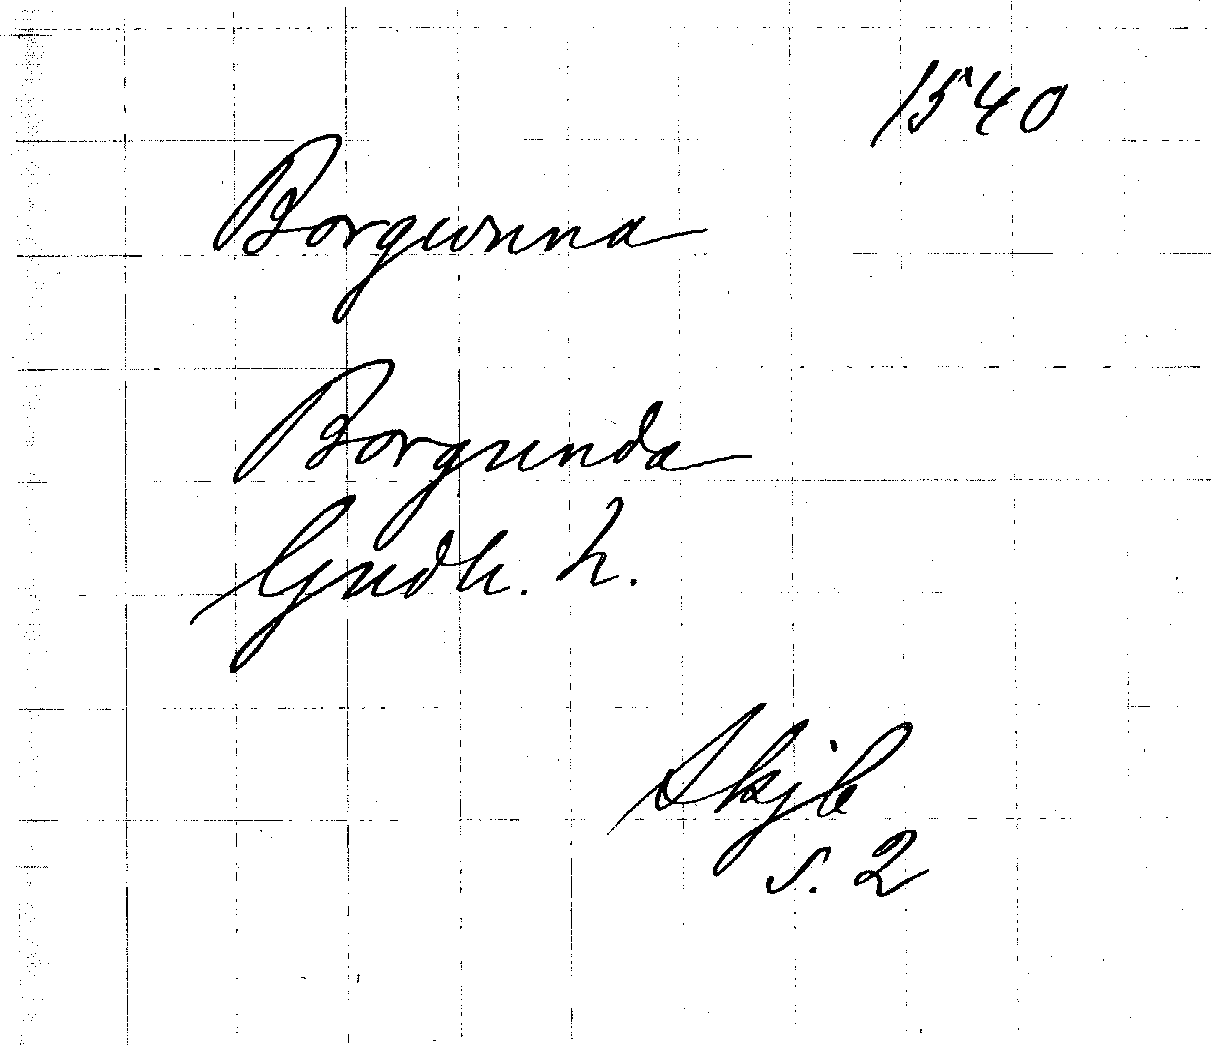 1540
Borgunna
Borgunda
Gudh. h.
Skjb
s. 2